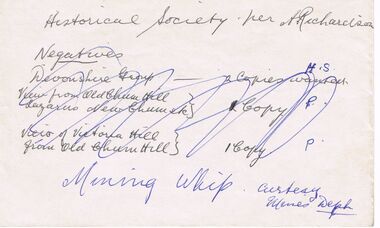 Historical Society per A Richardson
Negatives
H.S
Devonshire Group — 2 Copies wanted
View from Old Chum Hill
Lazarus New Chum etc } 1 Copy P.
View of Victoria Hill
from Old Chum Hill } 1 Copy P.
Mining Whip. Curtesy
Mines Dept